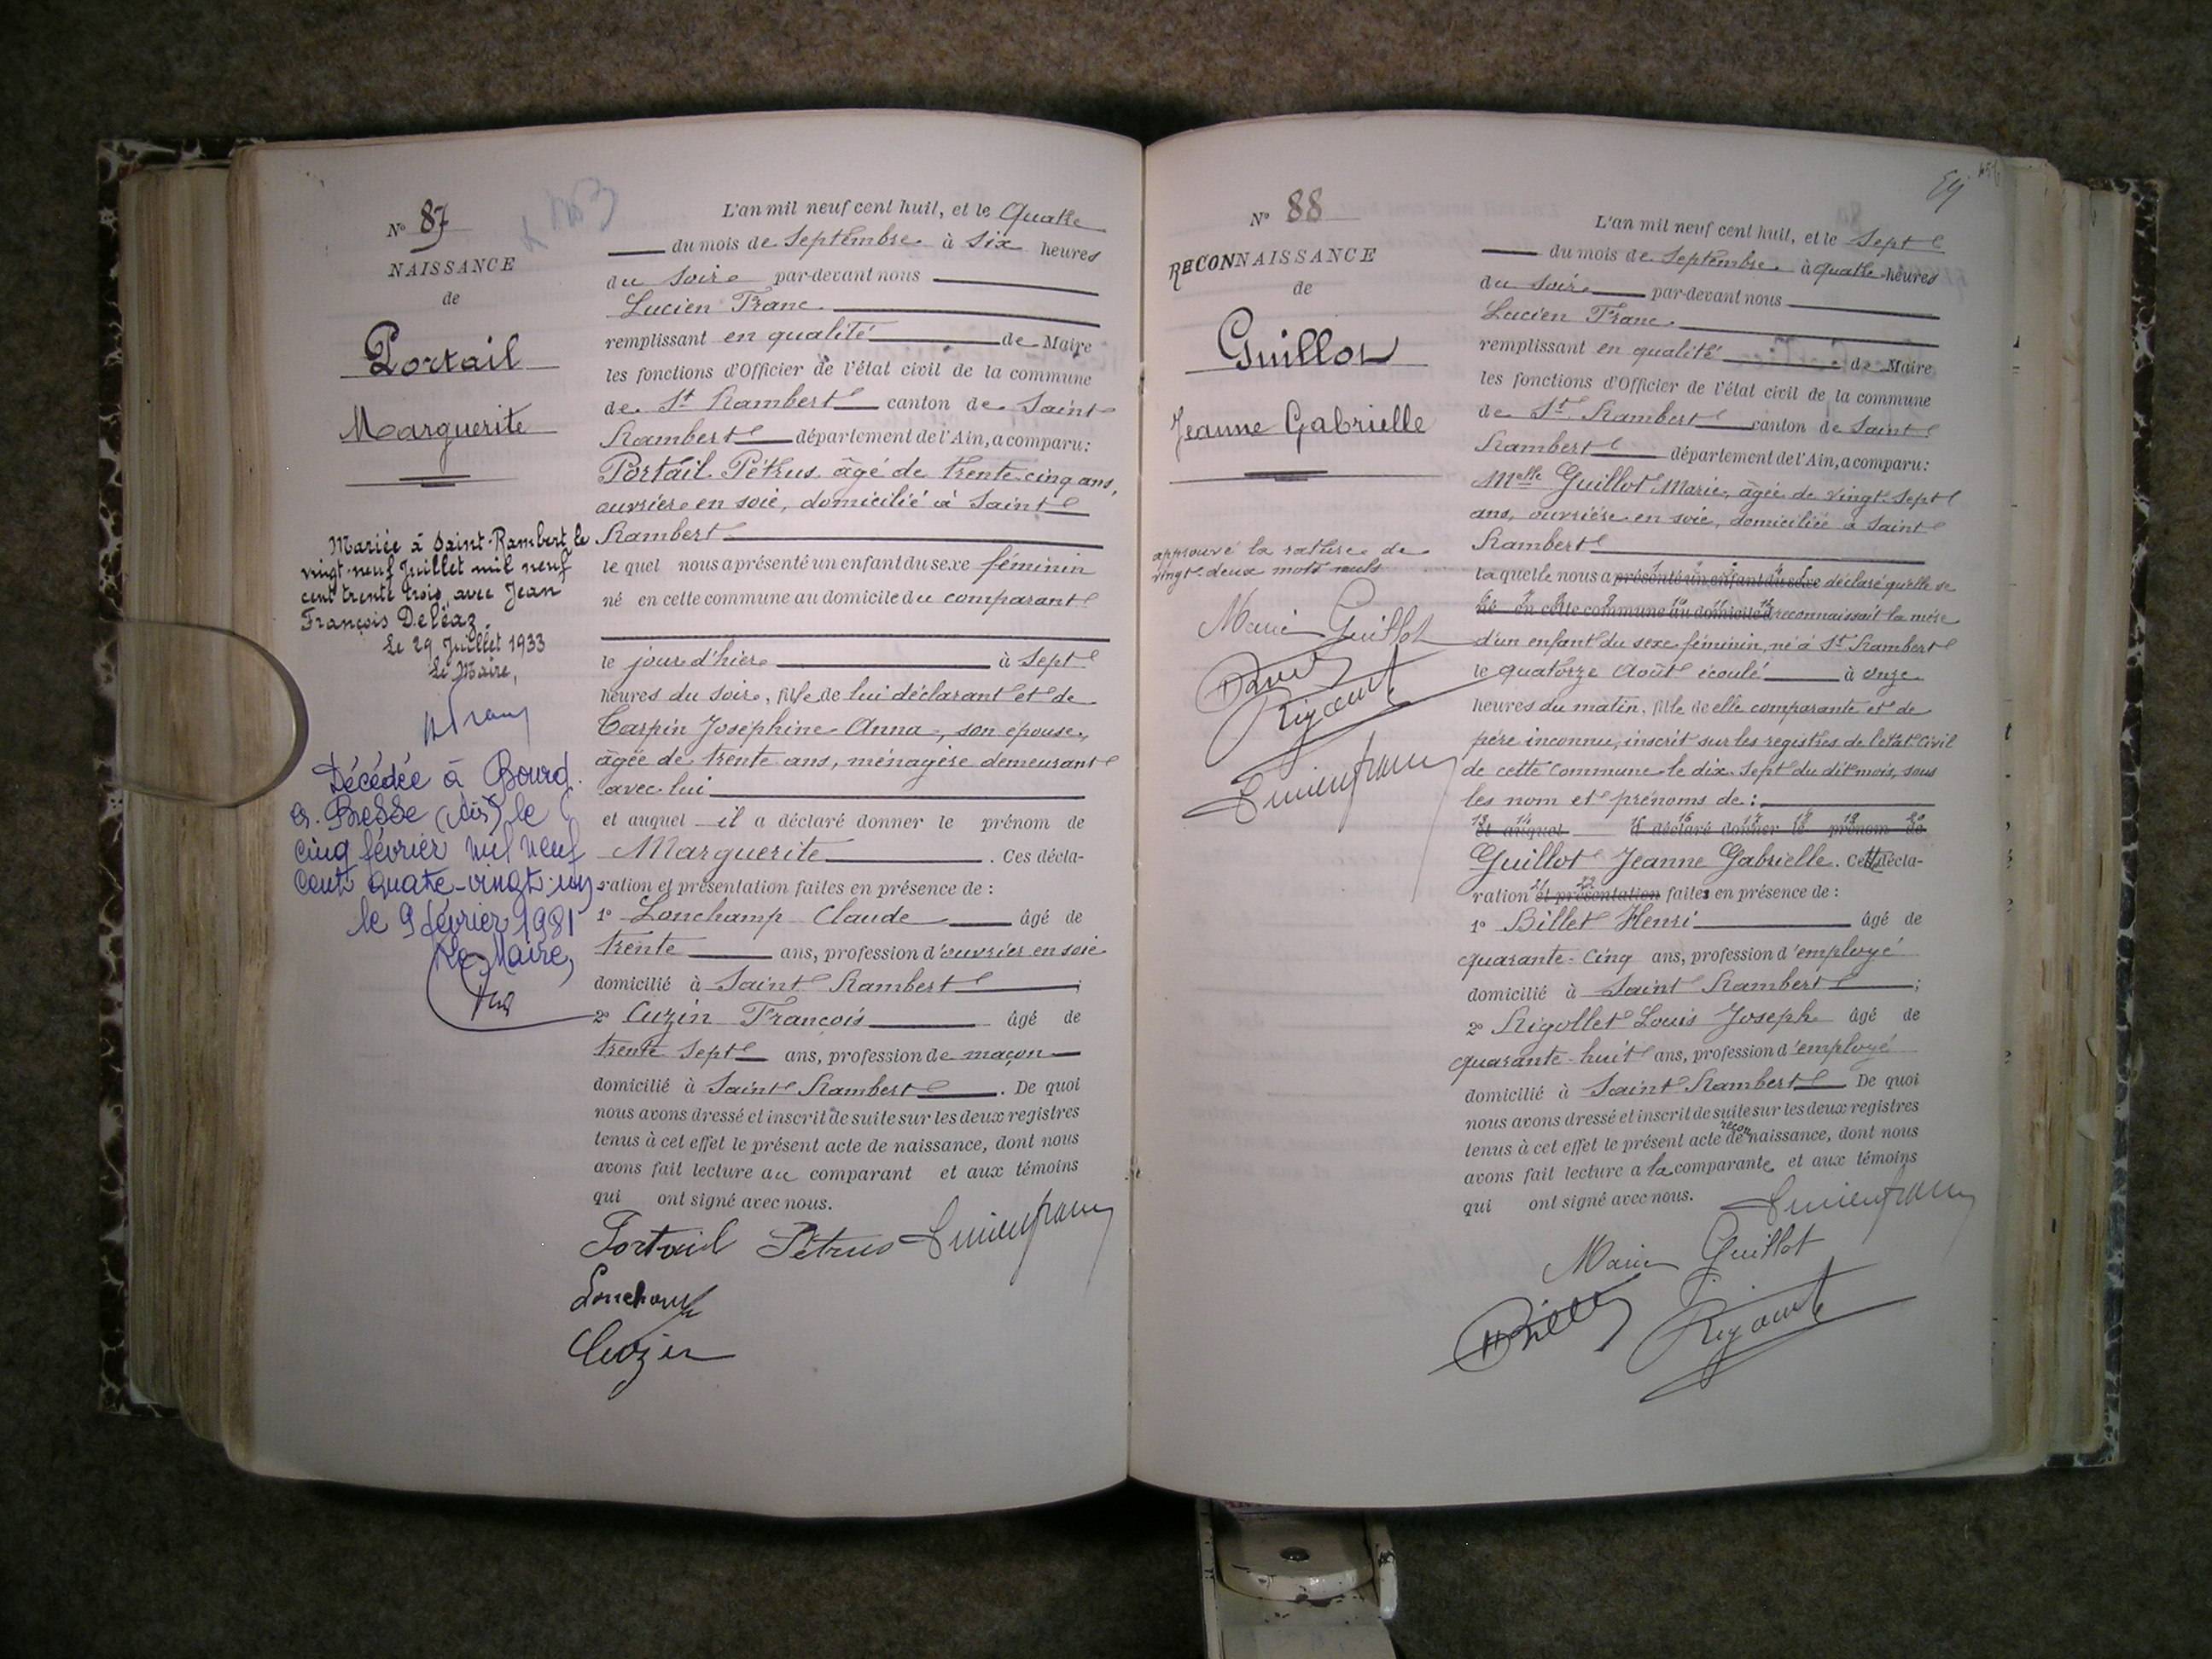 N° 87
NAISSANCE
de
Portail
Marguerite
Mariée à Saint-Rambert, le
vingt-neuf Juillet mil neuf
cent trente trois, avec Jean
François Deléaz.
Le 29 Juillet 1933
Le Maire,
Décédée à Bourg
en Bresse (Ain) le
cinq février mil neuf
cent quatre-vingt-un
le 9 février 1981
Le Maire,
L'an mil neuf cent huit, et le Quatre
du mois de Septembre à Six heures
du Soir par-devant nous
Lucien Franc
remplissant en qualité de Maire
les fonctions d'Officier de l'état civil de la commune
de St Rambert canton de Saint
Rambert département de l'Ain, a comparu:
Portail Pétrus âgé de trente-cinq ans,
ouvrier en soie, domicilié à Saint
Rambert
le quel nous a présenté un enfant du sexe féminin
né en cette commune au domicile du comparant
le jour d'hier à Sept
heures du soir, fille de lui déclarant et de
Carpin Joséphine Anna, son épouse,
âgée de trente ans, ménagère demeurant
avec lui
et auquel il a déclaré donner le prénom de
Marguerite. Ces décla-
ration et présentation faites en présence de :
1° Lonchamp Claude âgé de
trente ans, profession d'ouvrier en soie
domicilié à Saint Rambert ;
2° Cuzin François âgé de
trente sept ans, profession de maçon
domicilié à Saint Rambert. De quoi
nous avons dressé et inscrit de suite sur les deux registres
tenus à cet effet le présent acte de naissance, dont nous
avons fait lecture au comparant et aux témoins
qui ont signé avec nous.
Portail Pétrus Lucien franc
Lonchamp
Cuzin
N° 88
RECONNAISSANCE
de
Guillot
Jeanne Gabrielle
approuvé la rature de
vingt-deux mots nuls
Marie Guillot
Lucien franc
L'an mil neuf cent huit, et le Sept
du mois de Septembre à quatre heures
du Soir par-devant nous
Lucien Franc
remplissant en qualité de Maire
les fonctions d'Officier de l'état civil de la commune
de St Rambert canton de Saint
Rambert département de l'Ain, a comparu:
Melle Guillot Marie, âgée de vingt-sept
ans, ouvrière en soie, domiciliée à Saint
Rambert
laquelle nous a présenté un enfant du sexe déclaré qu'elle se
né en cette commune au domicile d reconnaissait la mère
d'un enfant du sexe féminin, né à St Rambert
le quatorze Août écoulé à onze
heures du matin, fille de elle comparante et de
père inconnu, inscrit sur les registres de l'état civil
de cette commune le dix-sept du dit mois, sous
les nom et prénoms de :
13 14 15 16 17 18 19 20
et auquel a déclaré donner le prénom de
Guillot Jeanne Gabrielle. Cette décla-
21 22
ration et présentation faites en présence de :
1° Billet Henri âgé de
quarante-cinq ans, profession d'employé
domicilié à Saint Rambert ;
2° Rigollet Louis Joseph âgé de
quarante-huit ans, profession d'employé
domicilié à Saint Rambert De quoi
nous avons dressé et inscrit de suite sur les deux registres
tenus à cet effet le présent acte de reconnaissance, dont nous
avons fait lecture a la comparante et aux témoins
qui ont signé avec nous.
Lucien franc
Marie Guillot